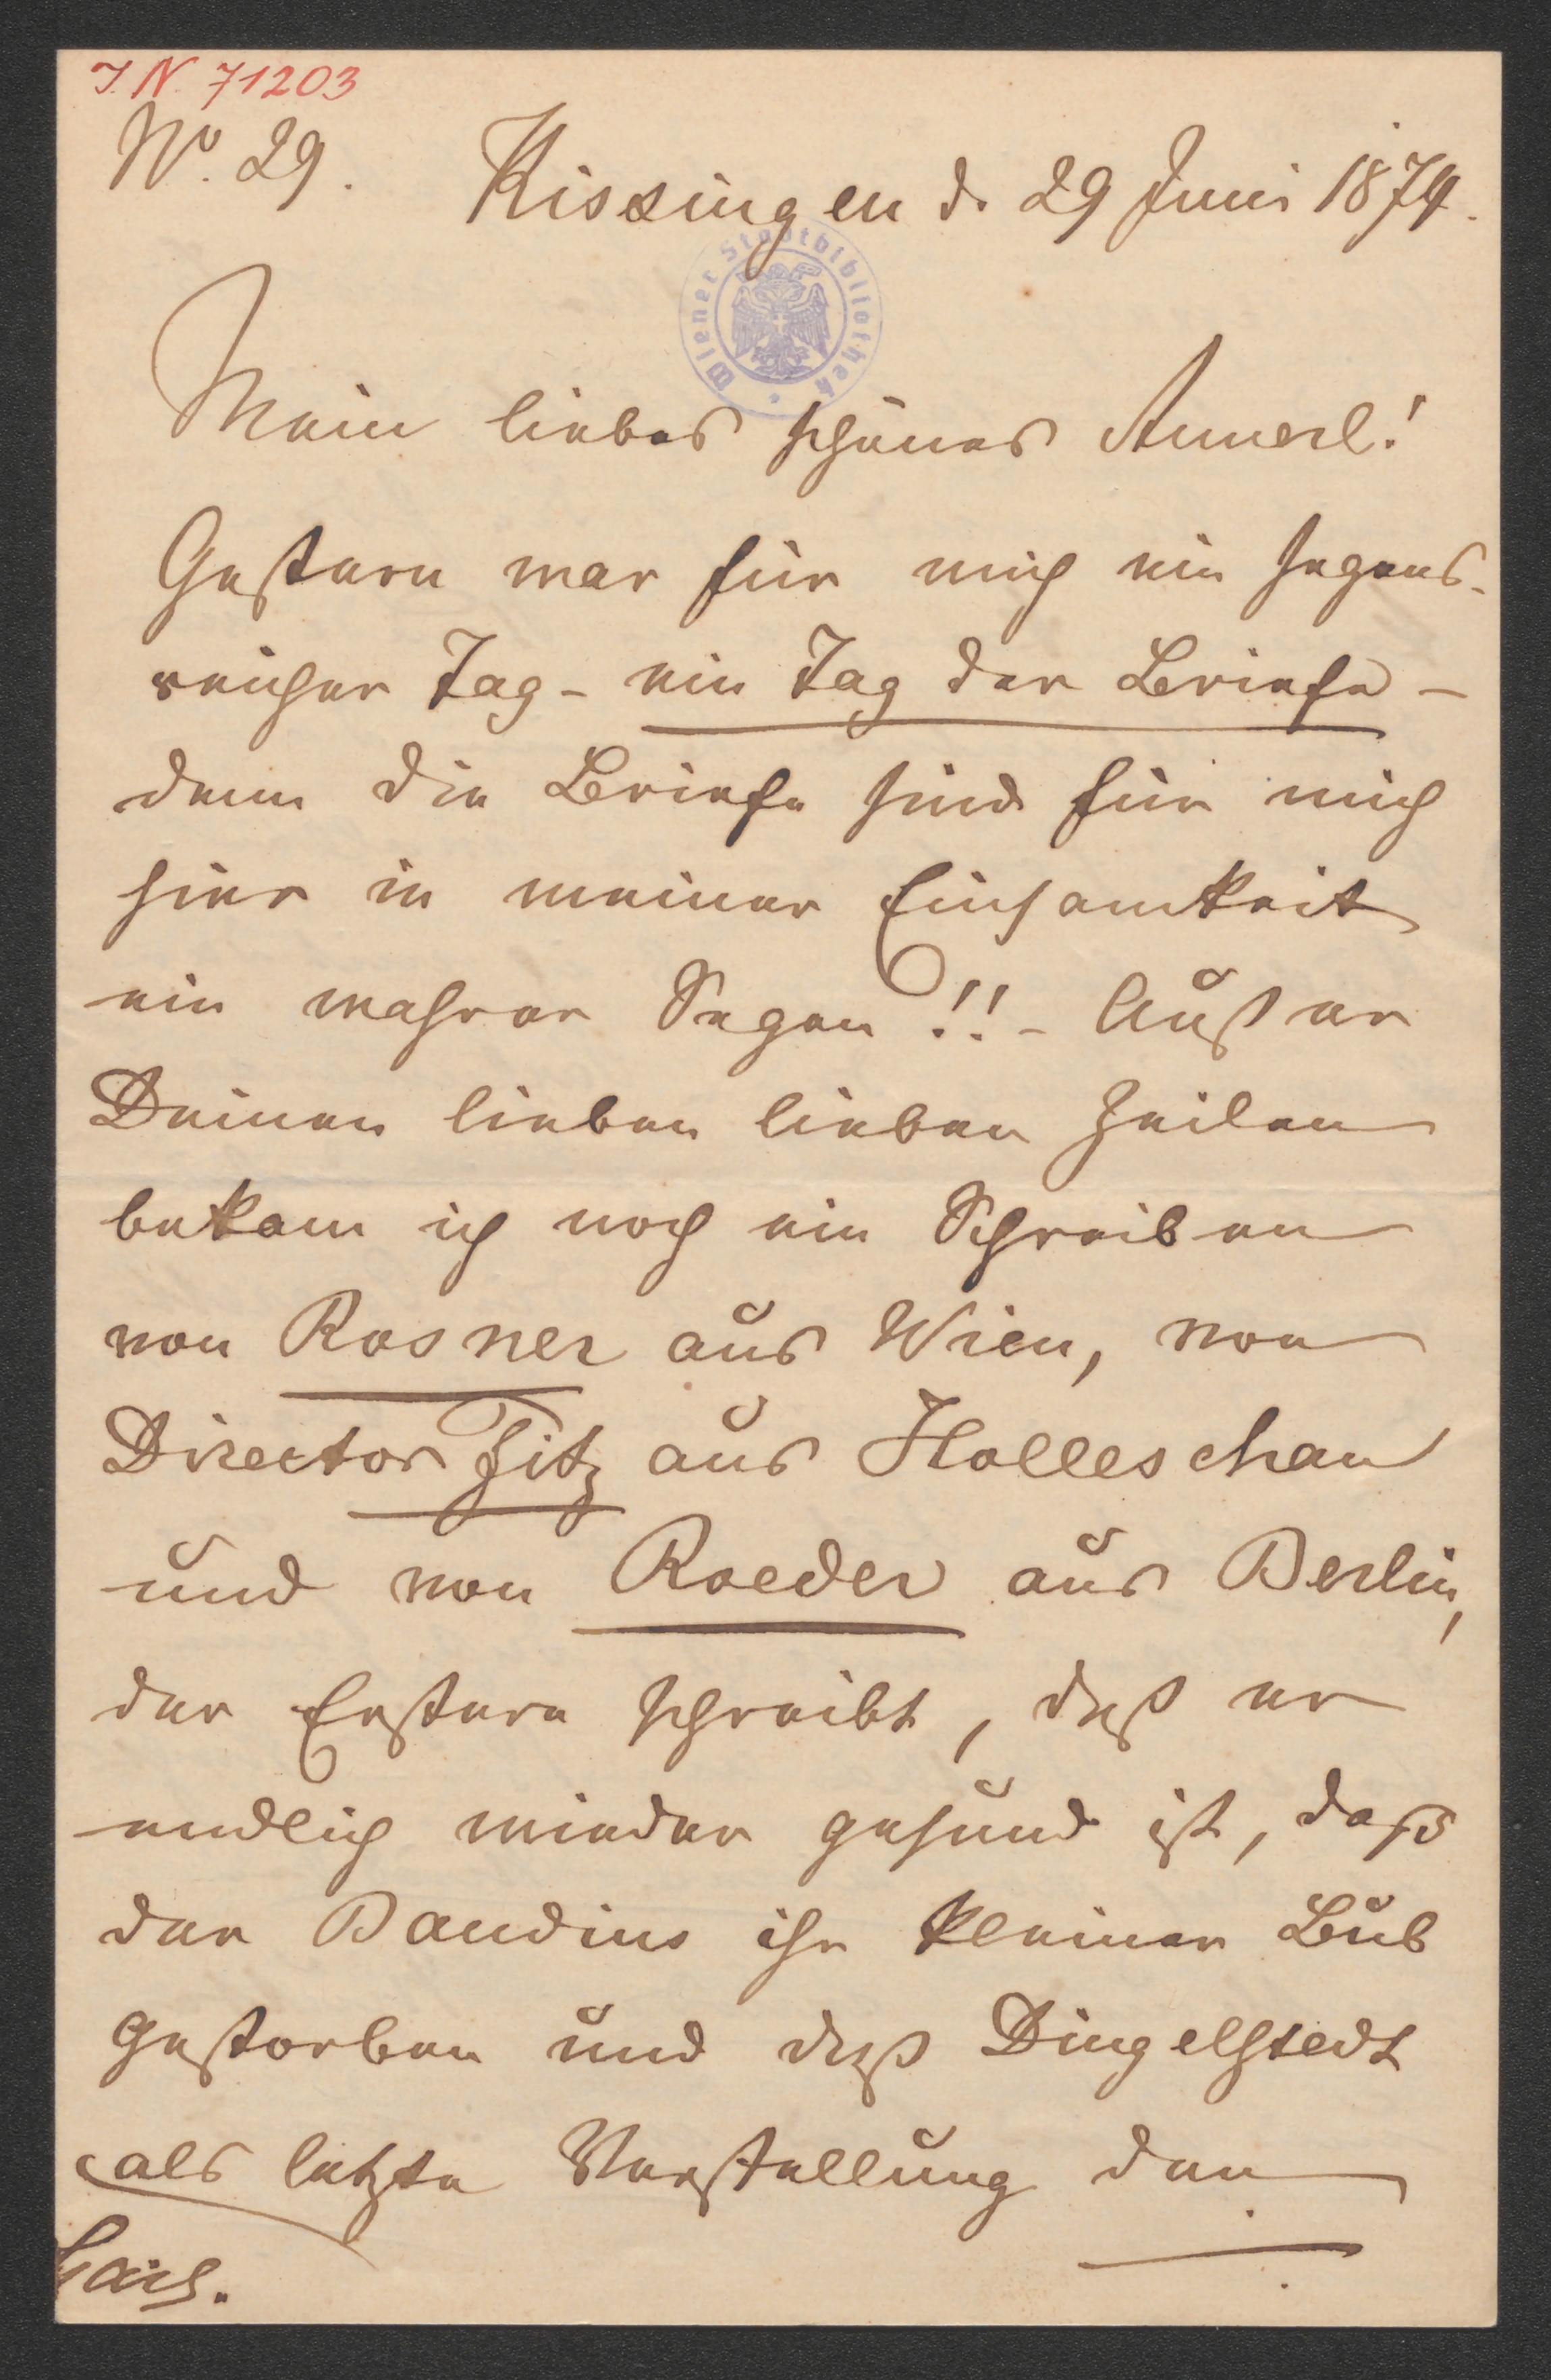 I. N. 71203
No. 29.
Kissingen d. 29 Juni 1874.
Wiener Stadtbibliothek
Mein liebes schönes Annerl!
Gestern war für mich ein segens-
reicher Tag - ein Tag der Briefe -
denn die Briefe sind für mich
hier in meiner Einsamkeit
ein wahrer Segen!! - Außer
Deinen lieben lieben Zeilen
bekam ich noch ein Schreiben
von Rosner aus Wien, von
Director Fitz aus Holleschau
und von Roeder aus Berlin,
der Erstere schreibt, daß er
endlich wieder gesund ist, dass
der Baudius ihr kleiner Bub
gestorben und daß Dingelstedt
als letzte Vorstellung den